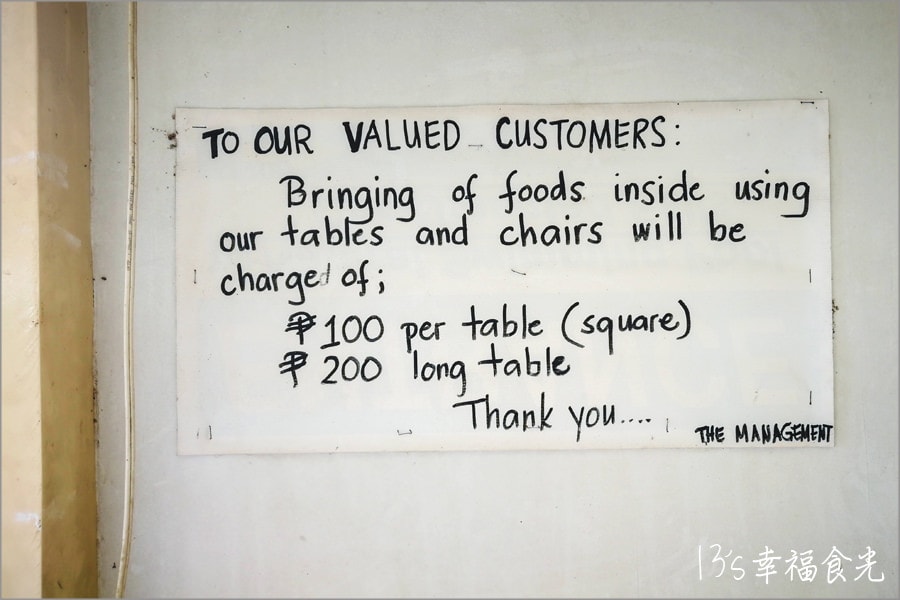 TO OUR VALUED CUSTOMERS:
Bringing of foods inside using
our tables and chairs will be
charged of;
₱100 per table (square)
₱ 200 long table
Thank you....
THE MANAGEMENT
13's幸福食光